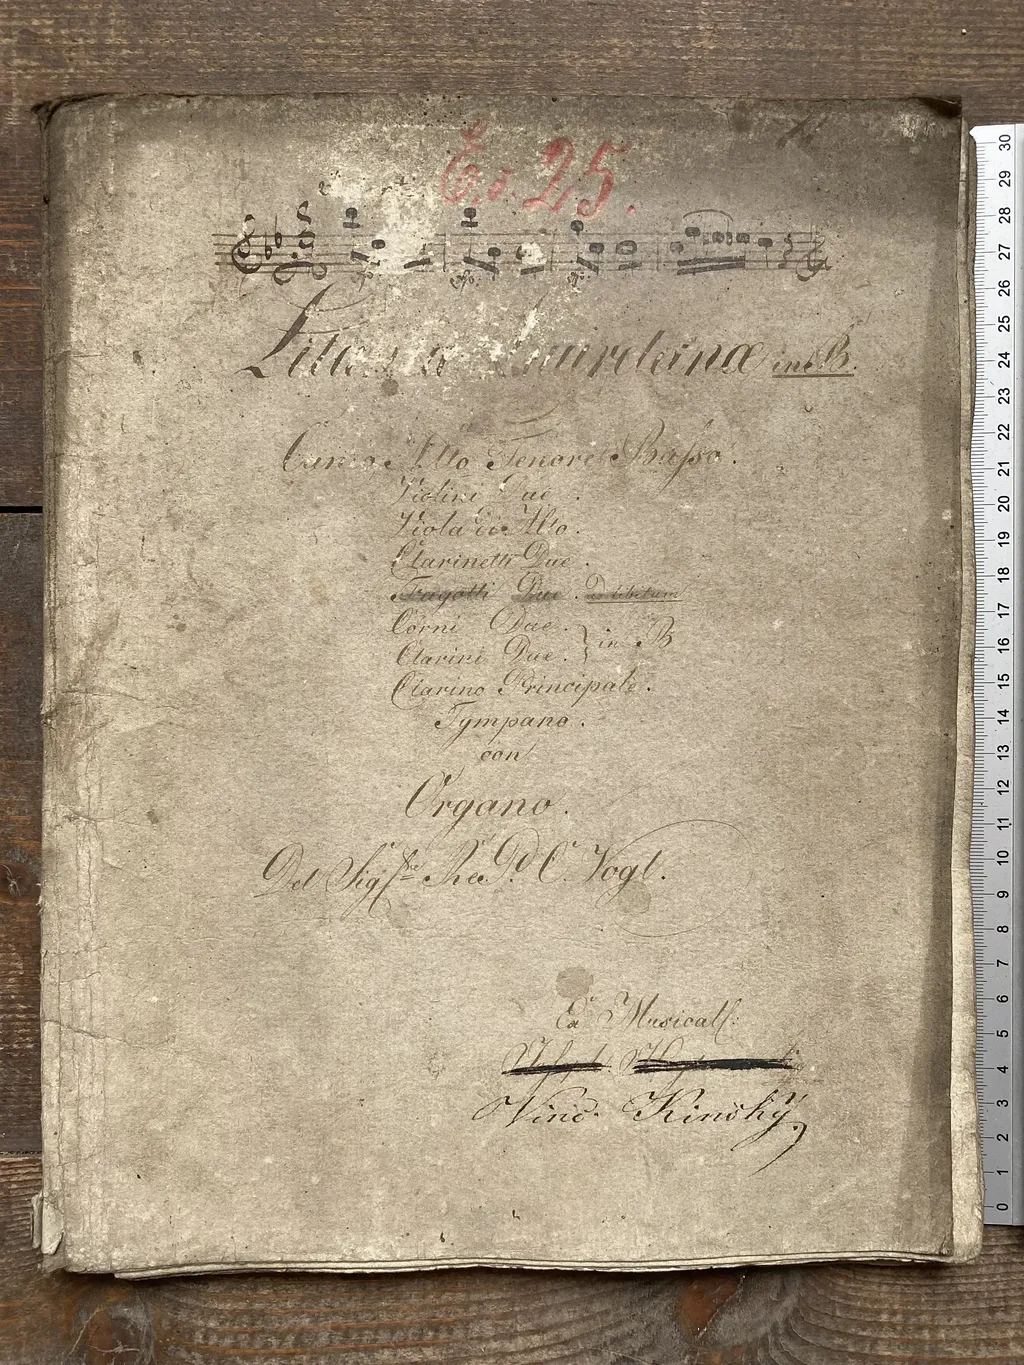 No 25.
Lauretanæ in B.
Canto Alto Tenore Basso.
Violini Due.
Viola di Alto.
Clarinetti Due.
Fagotti Due. ad libitum
Corni Due.
in B
Clarini Due.
Clarino Principale.
Tympano.
con
Organo.
Del Sig. C. Vogl.
Ex Musical:
Vinc. Kinský
30
29
28
27
26
25
24
23
22
21
20
19
18
17
16
15
14
13
12
11
10
9
8
7
6
5
4
3
2
1
0